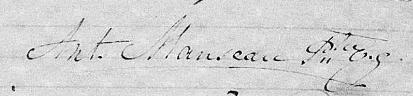 Ant. Manseau Ptre